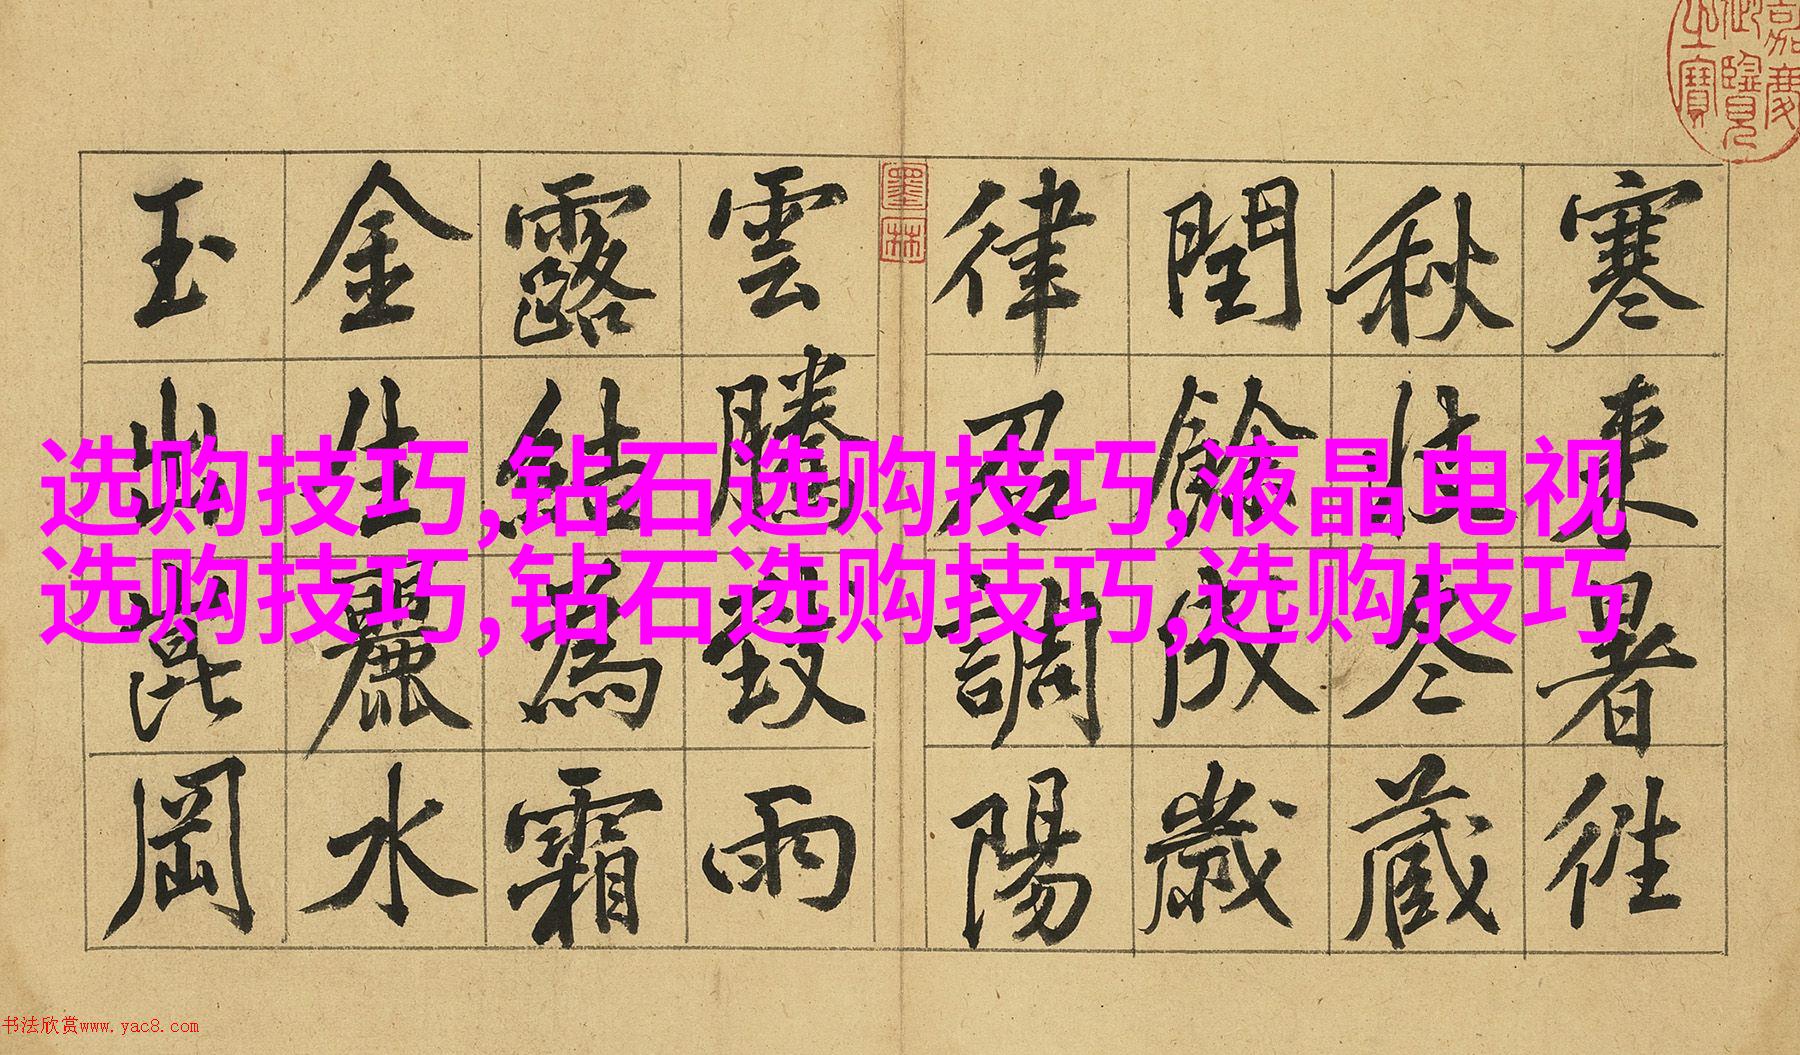 嘉慶
御覽
之寶
寒來暑徃
秋收冬蔵
閏餘成歲
律召調陽
墨林
雲騰致雨
露結爲霜
金生麗水
玉出崑岡
选购技巧,钻石选购技巧,液晶电视
选购技巧,钻石选购技巧,选购技巧
书法欣赏www.yac8.com